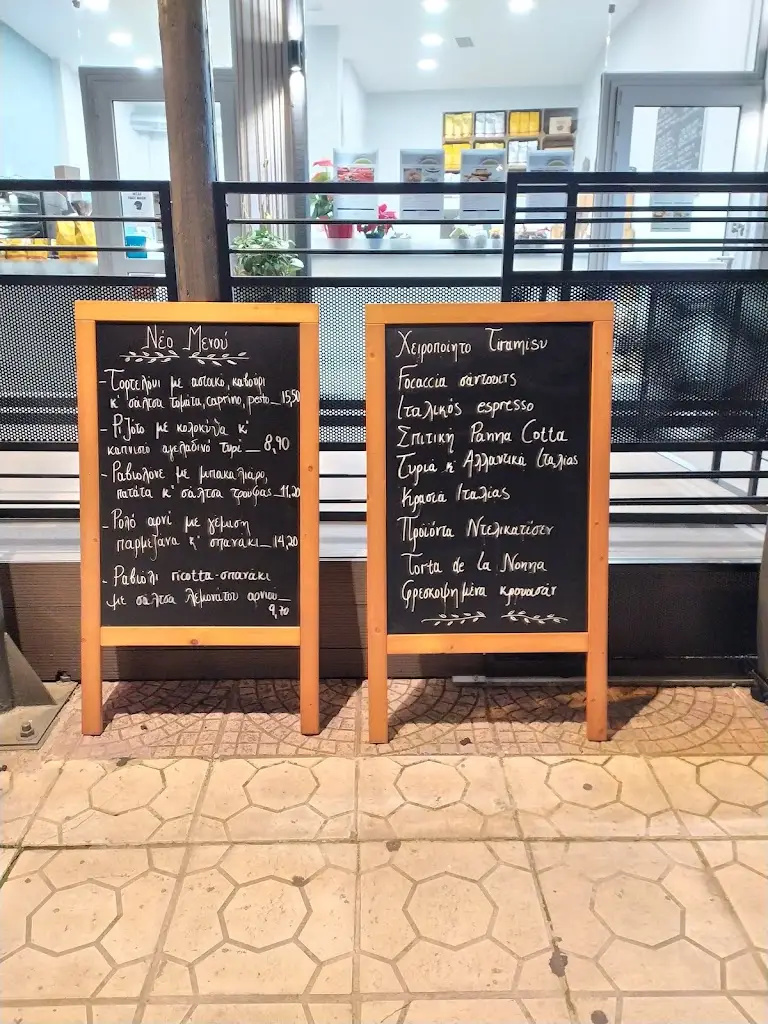 Νέο Μενού
- Τορτελόνι με αστακό, καβούρι
κ' σάλτσα τομάτα, caprino, pesto_15,50
- Ριζότο με κολοκύθα κ'
καπνιστό αγελαδινό τυρί_8,90
- Ραβιολόνε με μπακαλιάρο,
πατάτα κ' σάλτσα τρούφας_11,20
- Ρολό αρνί με γέμιση
παρμεζάνα κ' σπανάκι_14,20
- Ραβιόλι ricotta-σπανάκι
με σάλτσα λεμονάτου αρνιού_
9,70
Χειροποίητο Tiramisu
Focaccia σάντουιτς
Ιταλικός espresso
Σπιτική Panna Cotta
Τυριά κ' Αλλαντικά Ιταλίας
Κρασιά Ιταλίας
Προϊόντα Ντελικατέσεν
Torta de La Nonna
Φρεσκοψημένα κρουασάν